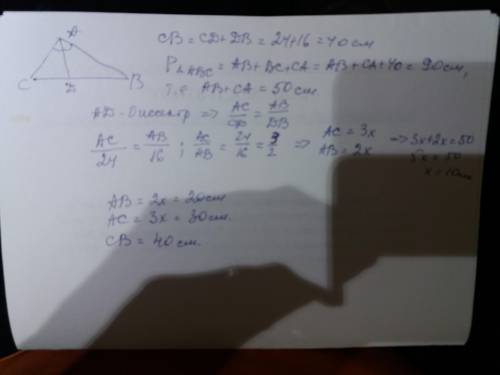 A
C
D
B
CB = CD + DB = 24 + 16 = 40 см
P△ABC = AB + BC + CA = AB + CA + 40 = 90 см,
т.е. AB + CA = 50 см.
AD - биссектр => AC/CD = AB/DB
AC/24 = AB/16 ; AC/AB = 24/16 = 3/2 => AC = 3x AB = 2x => 3x + 2x = 50
5x = 50
x = 10 см
AB = 2x = 20 см
AC = 3x = 30 см.
CB = 40 см.